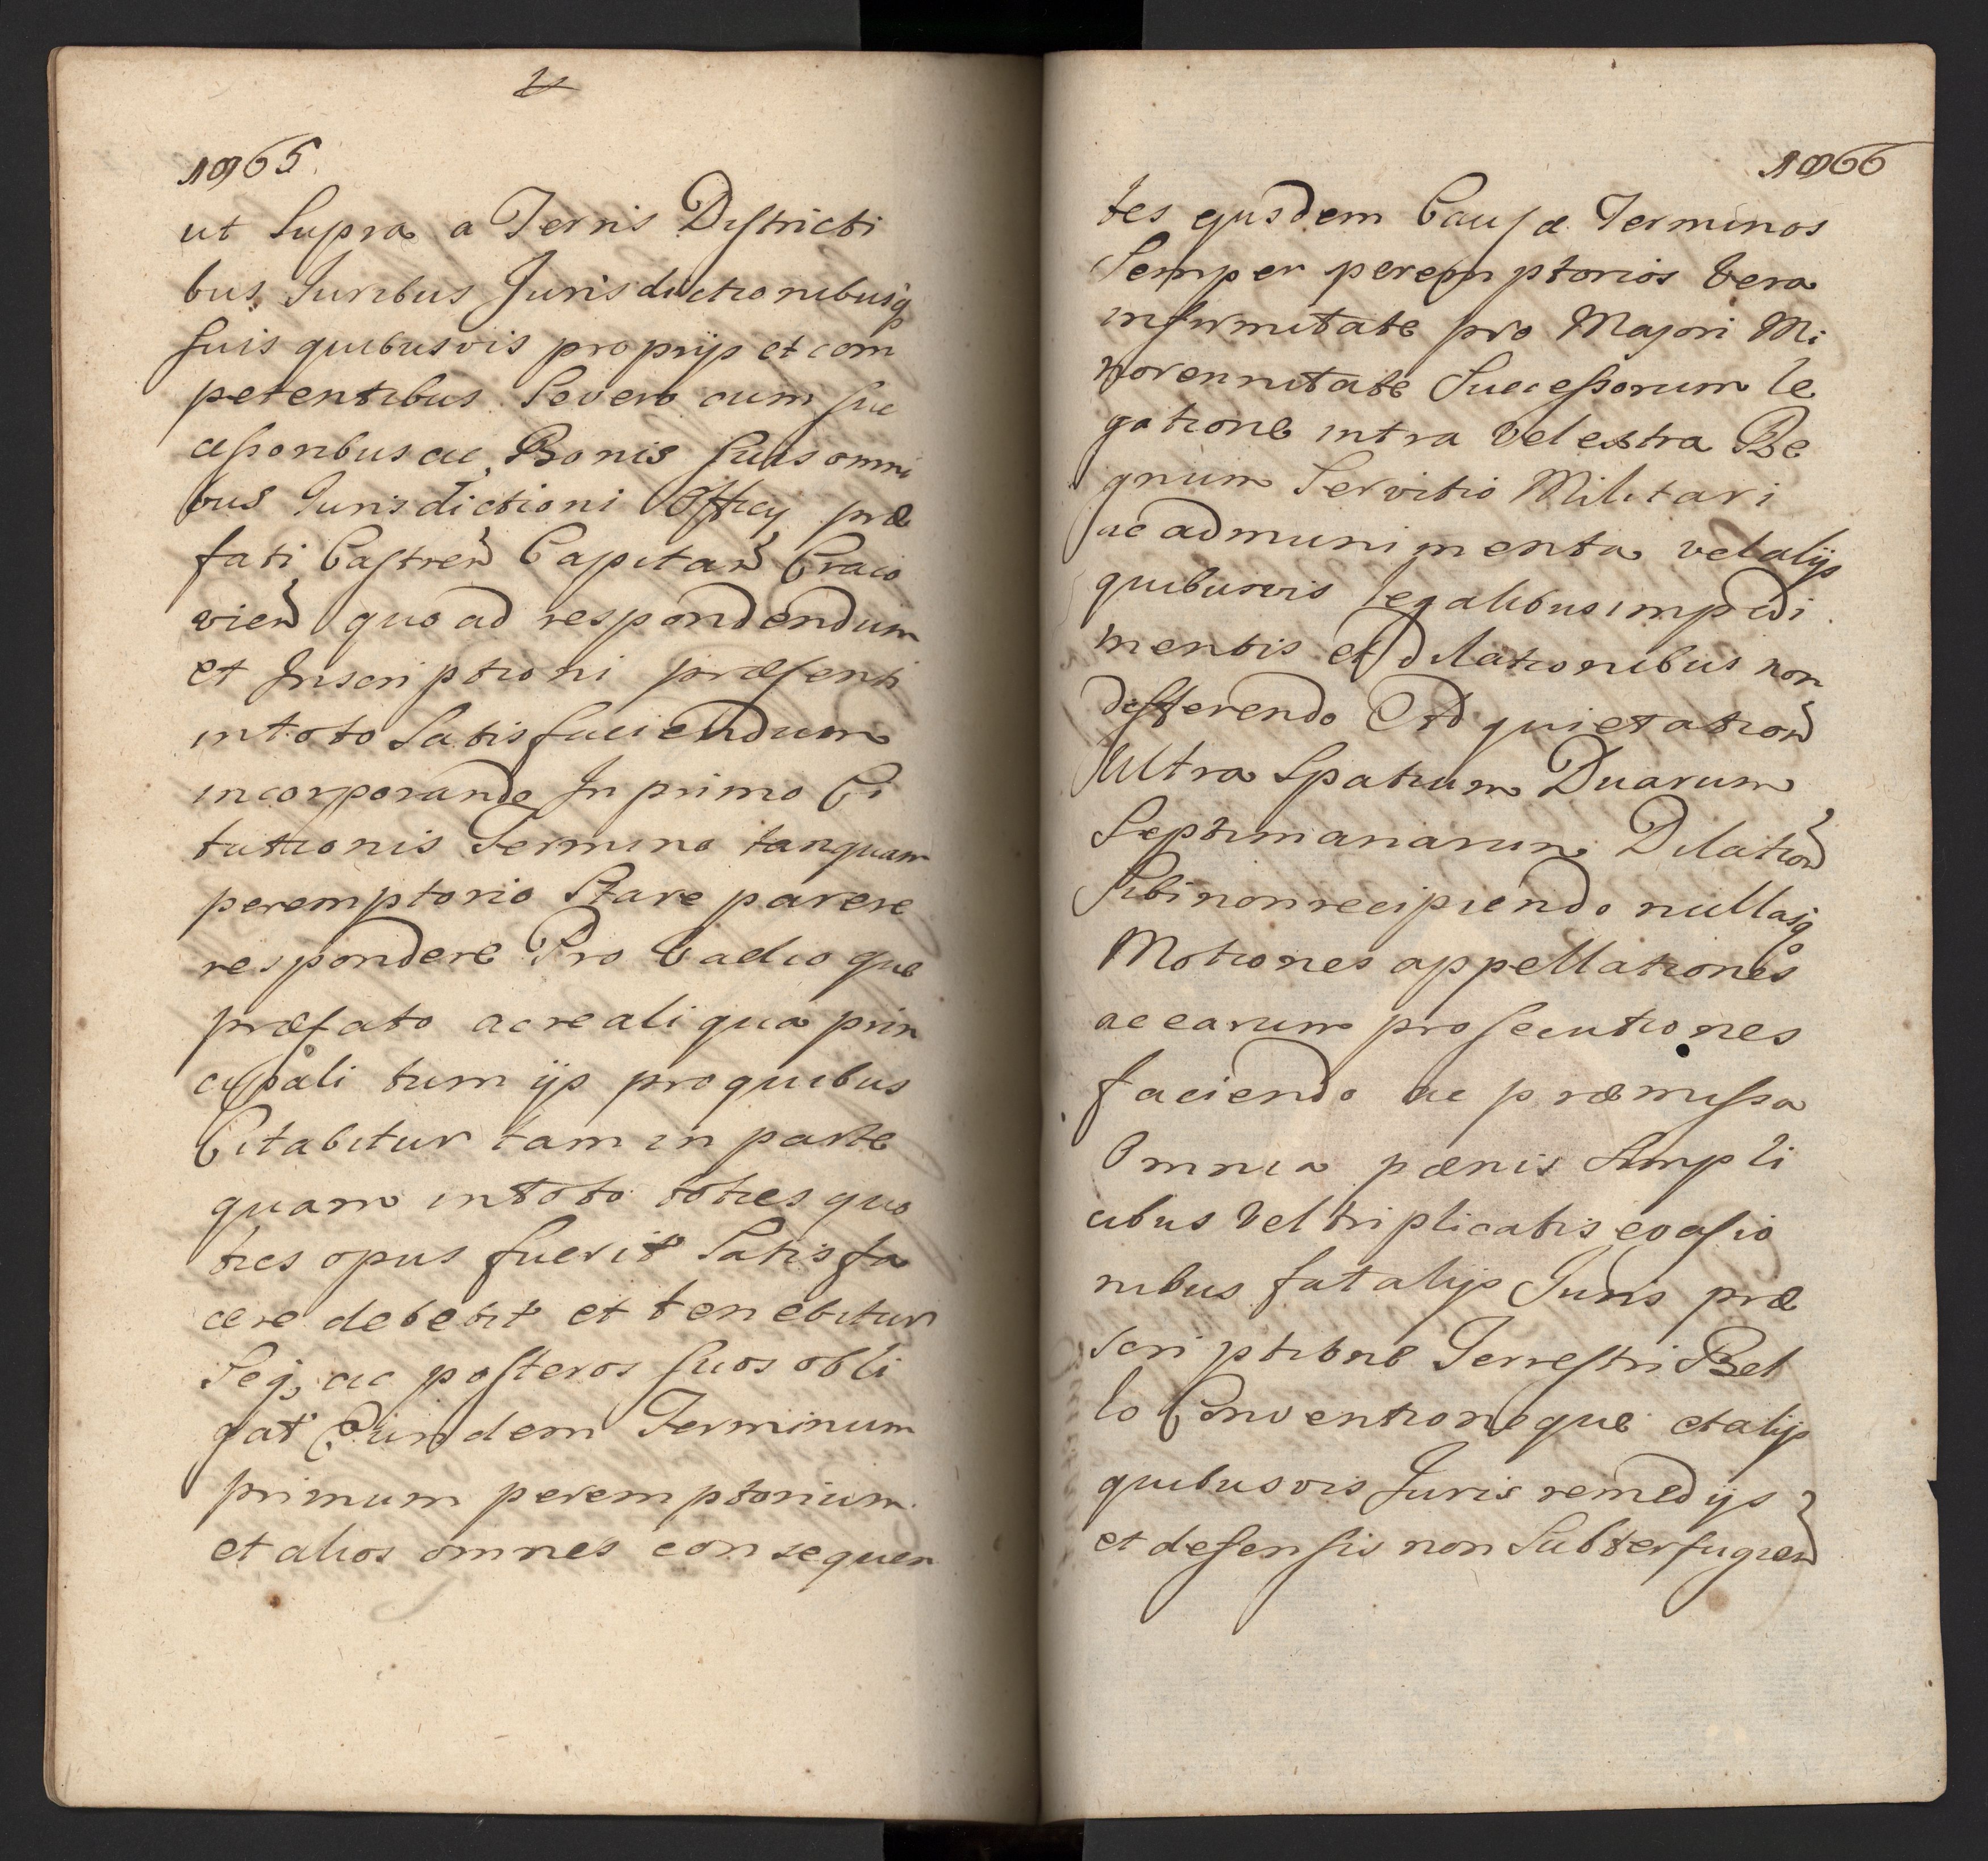 1965
ut Supra a Terris Districti
bus Juribus Jurisdictionibusq
suis quibusvis proprijs et com
petentibus Severo cum suc
cessoribus ac Bonis suis omni
bus Jurisdictioni Officij præ
fati Castren Capitan Craco
vien quoad respondendum
et Inscriptioni præsenti
in toto Satisfaciendum
incorporando In primo Ci
tationis Termino tanquam
peremptorio Stare parere
respondere Pro Vadio que
præfato ac re aliqua prin
cipali tum ijs pro quibus
Citabitur tam in parte
quam in toto toties quo
ties opus fuerit Satisfa
cere debebit et tenebitur
Seq, ac posteros suos obli
gat Eundem Terminum
primum peremptorium
et alios omnes consequen
1966
tes ejusdem Causæ Terminos
Semper peremptorios Vera
infirmitate pro Majori Mi
norennitate Successorum le
gatione intra Vel extra Re
gnum Servitio Militari
ac ad munimenta vel alijs
quibusvis legalibus impedi
mentis et Dilationibus non
differendo Ad quietation
Ultra Spatium Duarum
Septimanarum Dilation
Sibi non recipiendo nullasq
Motiones appellationes
ac earum prosecutiones
faciendo ac præmissa
Omnia pænis Simpli
cibus Vel triplicatis evasio
nibus fatalijs Juris præ
scriptione Terrestri Bel
lo Conventioneque et alijs
quibusvis Juris remedijs
et defensis non Subterfugien